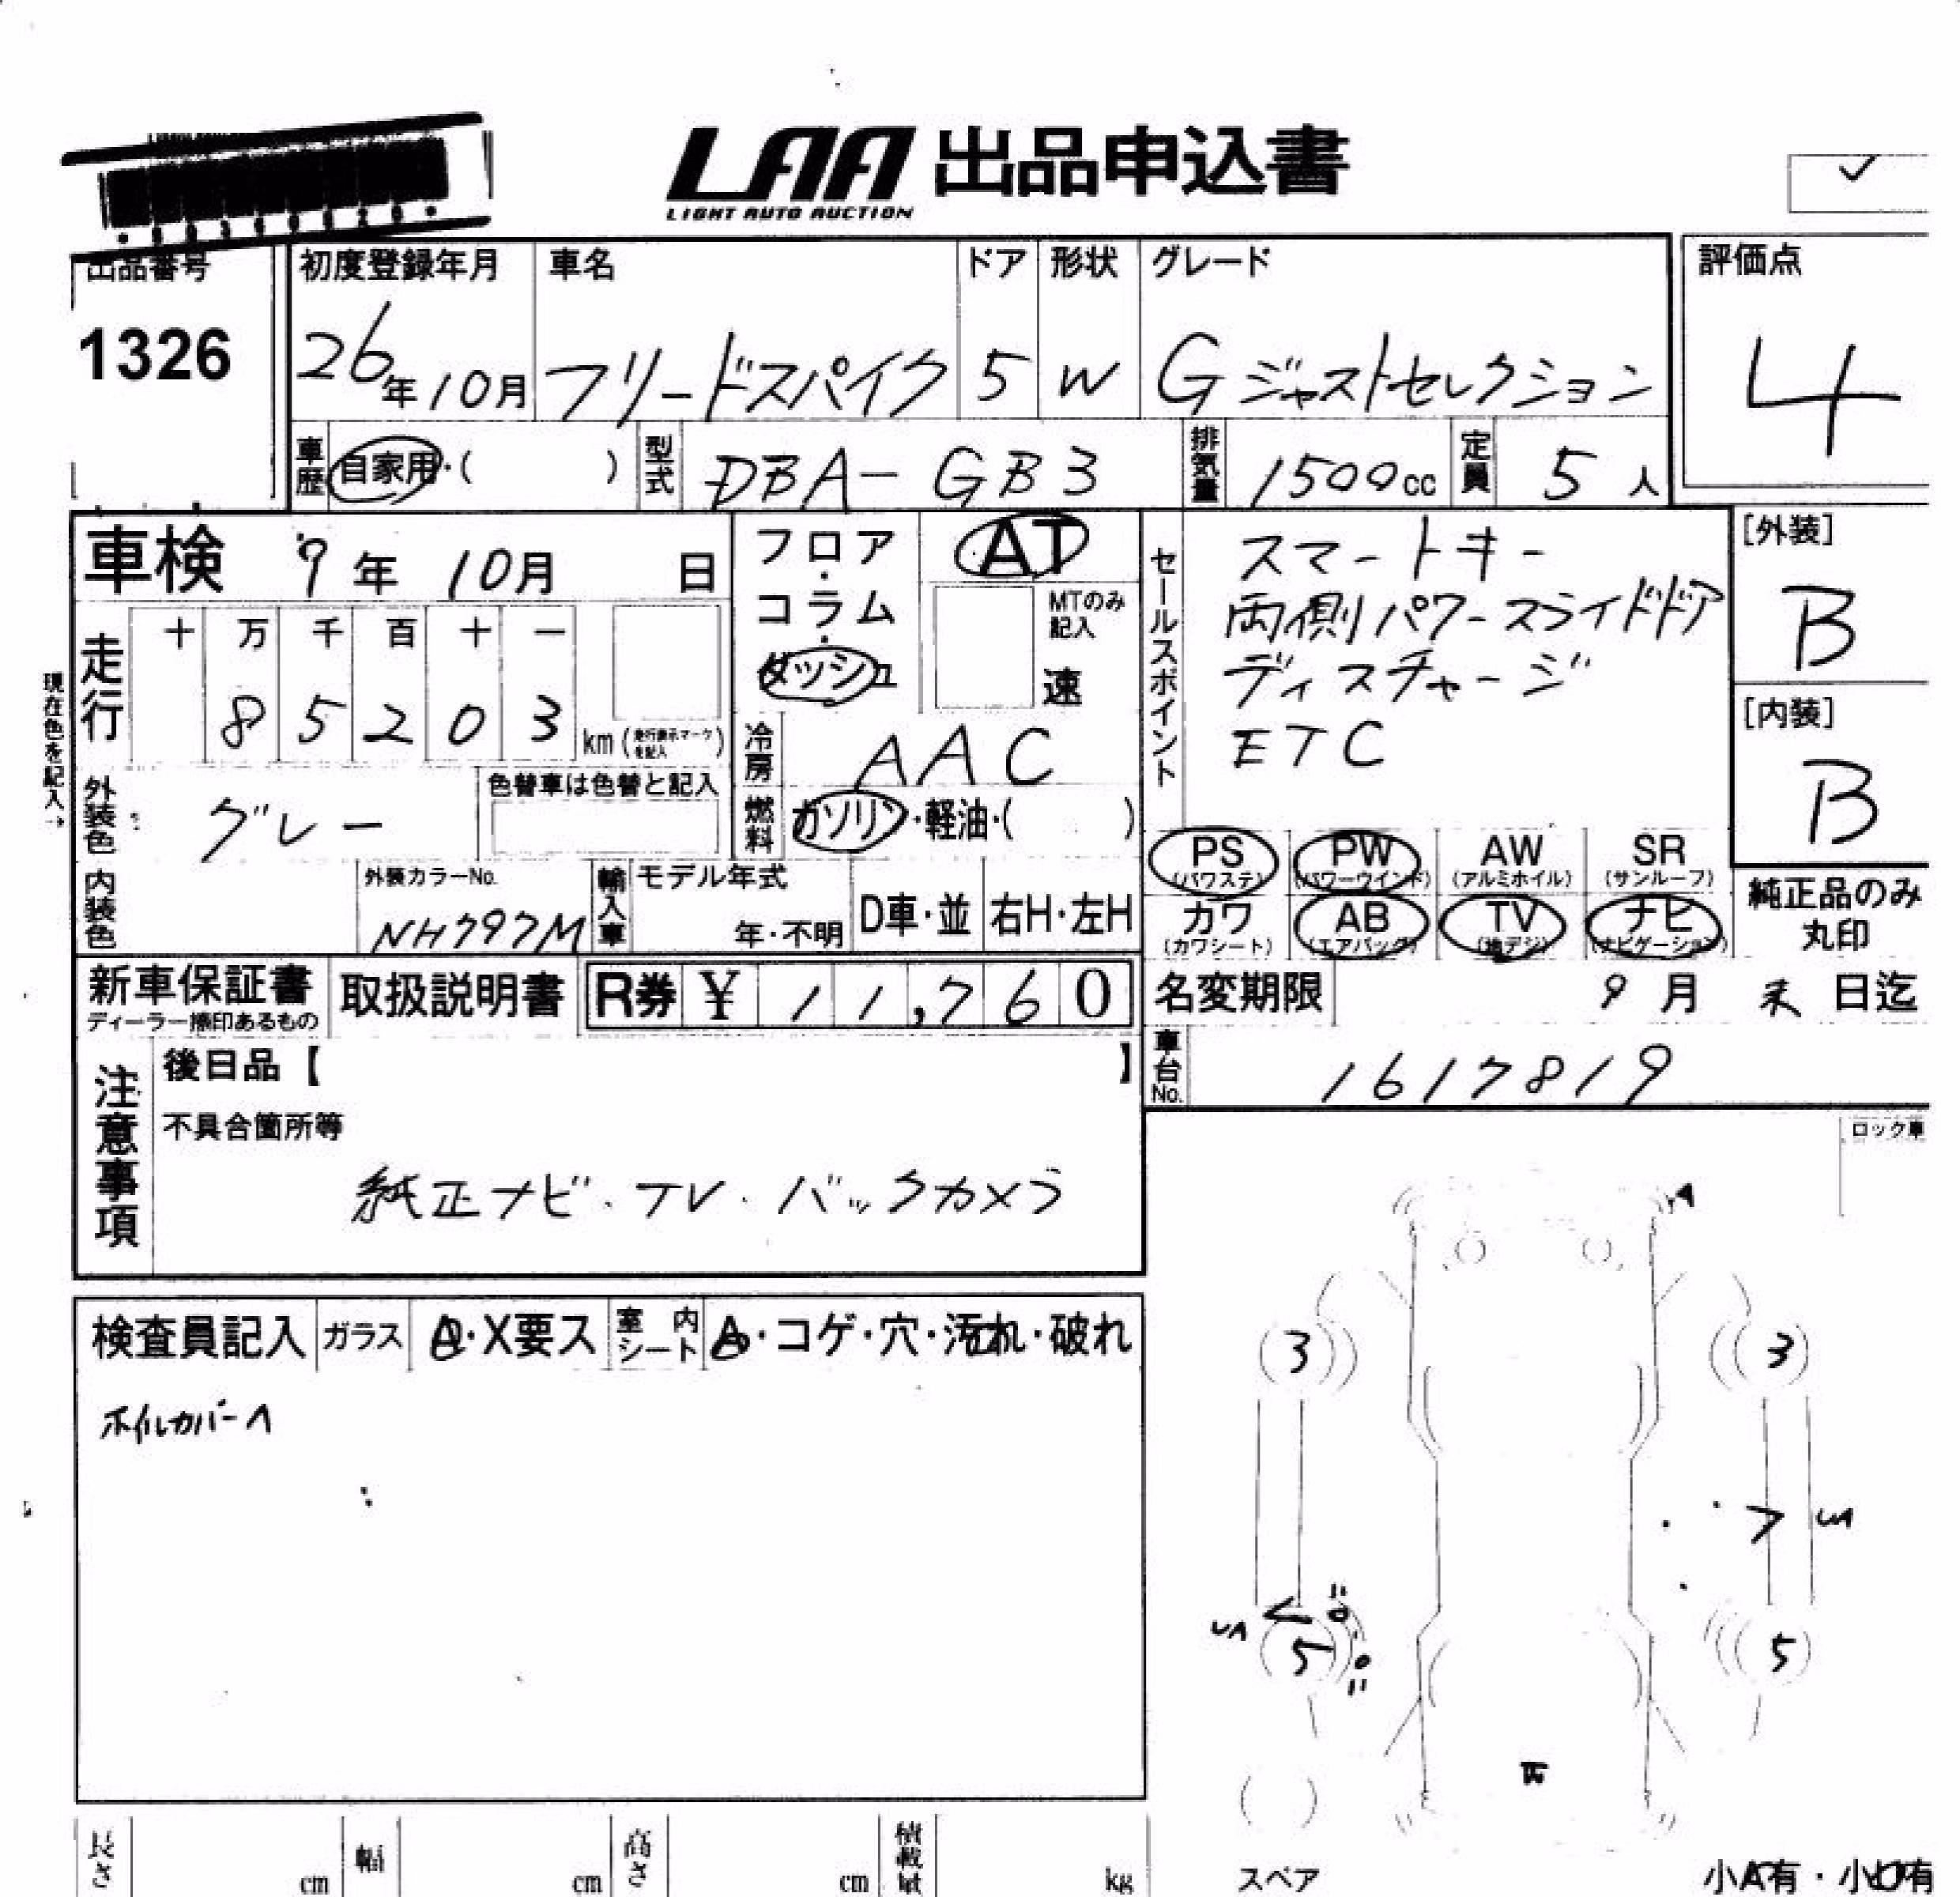 LAA 出品申込書
LIGHT AUTO AUCTION
出品番号
1326
初度登録年月
26年10月
車名
フリードスパイク
ドア
5
形状
W
グレード
Gジャストセレクション
評価点
4
車歴 自家用・( )
型式 DBA-GB3
排気量 1500cc
定員 5人
車検 9年 10月 日
走行
十 万 千 百 十 一
8 5 2 0 3 km (走行表示マークを記入)
現在色を記入→
外装色 グレー
色替車は色替と記入
内装色
外装カラーNo.
NH797M
フロア・コラム・ダッシュ
AT
MTのみ記入
速
冷房 AAC
燃料 ガソリン・軽油・( )
輸入車
モデル年式
年・不明
D車・並
右H・左H
セールスポイント
スマートキー
両側パワースライドドア
ディスチャージ
ETC
PS (パワステ)
PW (パワーウインド)
AW (アルミホイル)
SR (サンルーフ)
カワ (カワシート)
AB (エアバック)
TV (地デジ)
ナビ (ナビゲーション)
[外装]
B
[内装]
B
純正品のみ
丸印
新車保証書
ディーラー捺印あるもの
取扱説明書
R券 ¥ 11,760
名変期限 9月 末日迄
車台No. 1617819
注意事項
後日品【 】
不具合箇所等
純正ナビ・TV・バックカメラ
検査員記入
ガラス
A・X要ス
室内シート
A・コゲ・穴・汚れ・破れ
ホイルカバーA
ロック車
A
3
3
UA
UA
5
5
長さ cm
幅 cm
高さ cm
積載量 kg
スペア
小A有・小U有